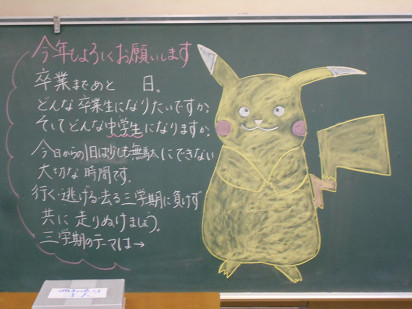 今年もよろしくお願いします
卒業まであと　　日。
どんな卒業生になりたいですか。
そしてどんな中学生になりますか。
今日からの1日は少しも無駄にできない
大切な時間です。
行く・逃げる・去る三学期に負けず
共に走りぬけましょう。
三学期のテーマは→